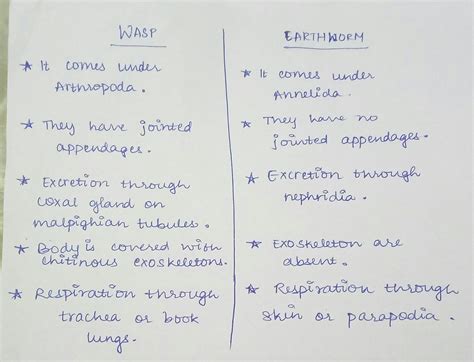 WASP
★ It comes under
Arthropoda.
★ They have jointed
appendages.
★ Excretion through
coxal gland on
malpighian tubules.
★ Body is covered with
chitinous exoskeletons.
★ Respiration through
trachea or book
lungs.
EARTHWORM
★ It comes under
Annelida.
★ They have no
jointed appendages.
★ Excretion through
nephridia.
★ Exoskeleton are
absent.
★ Respiration through
skin or parapodia.